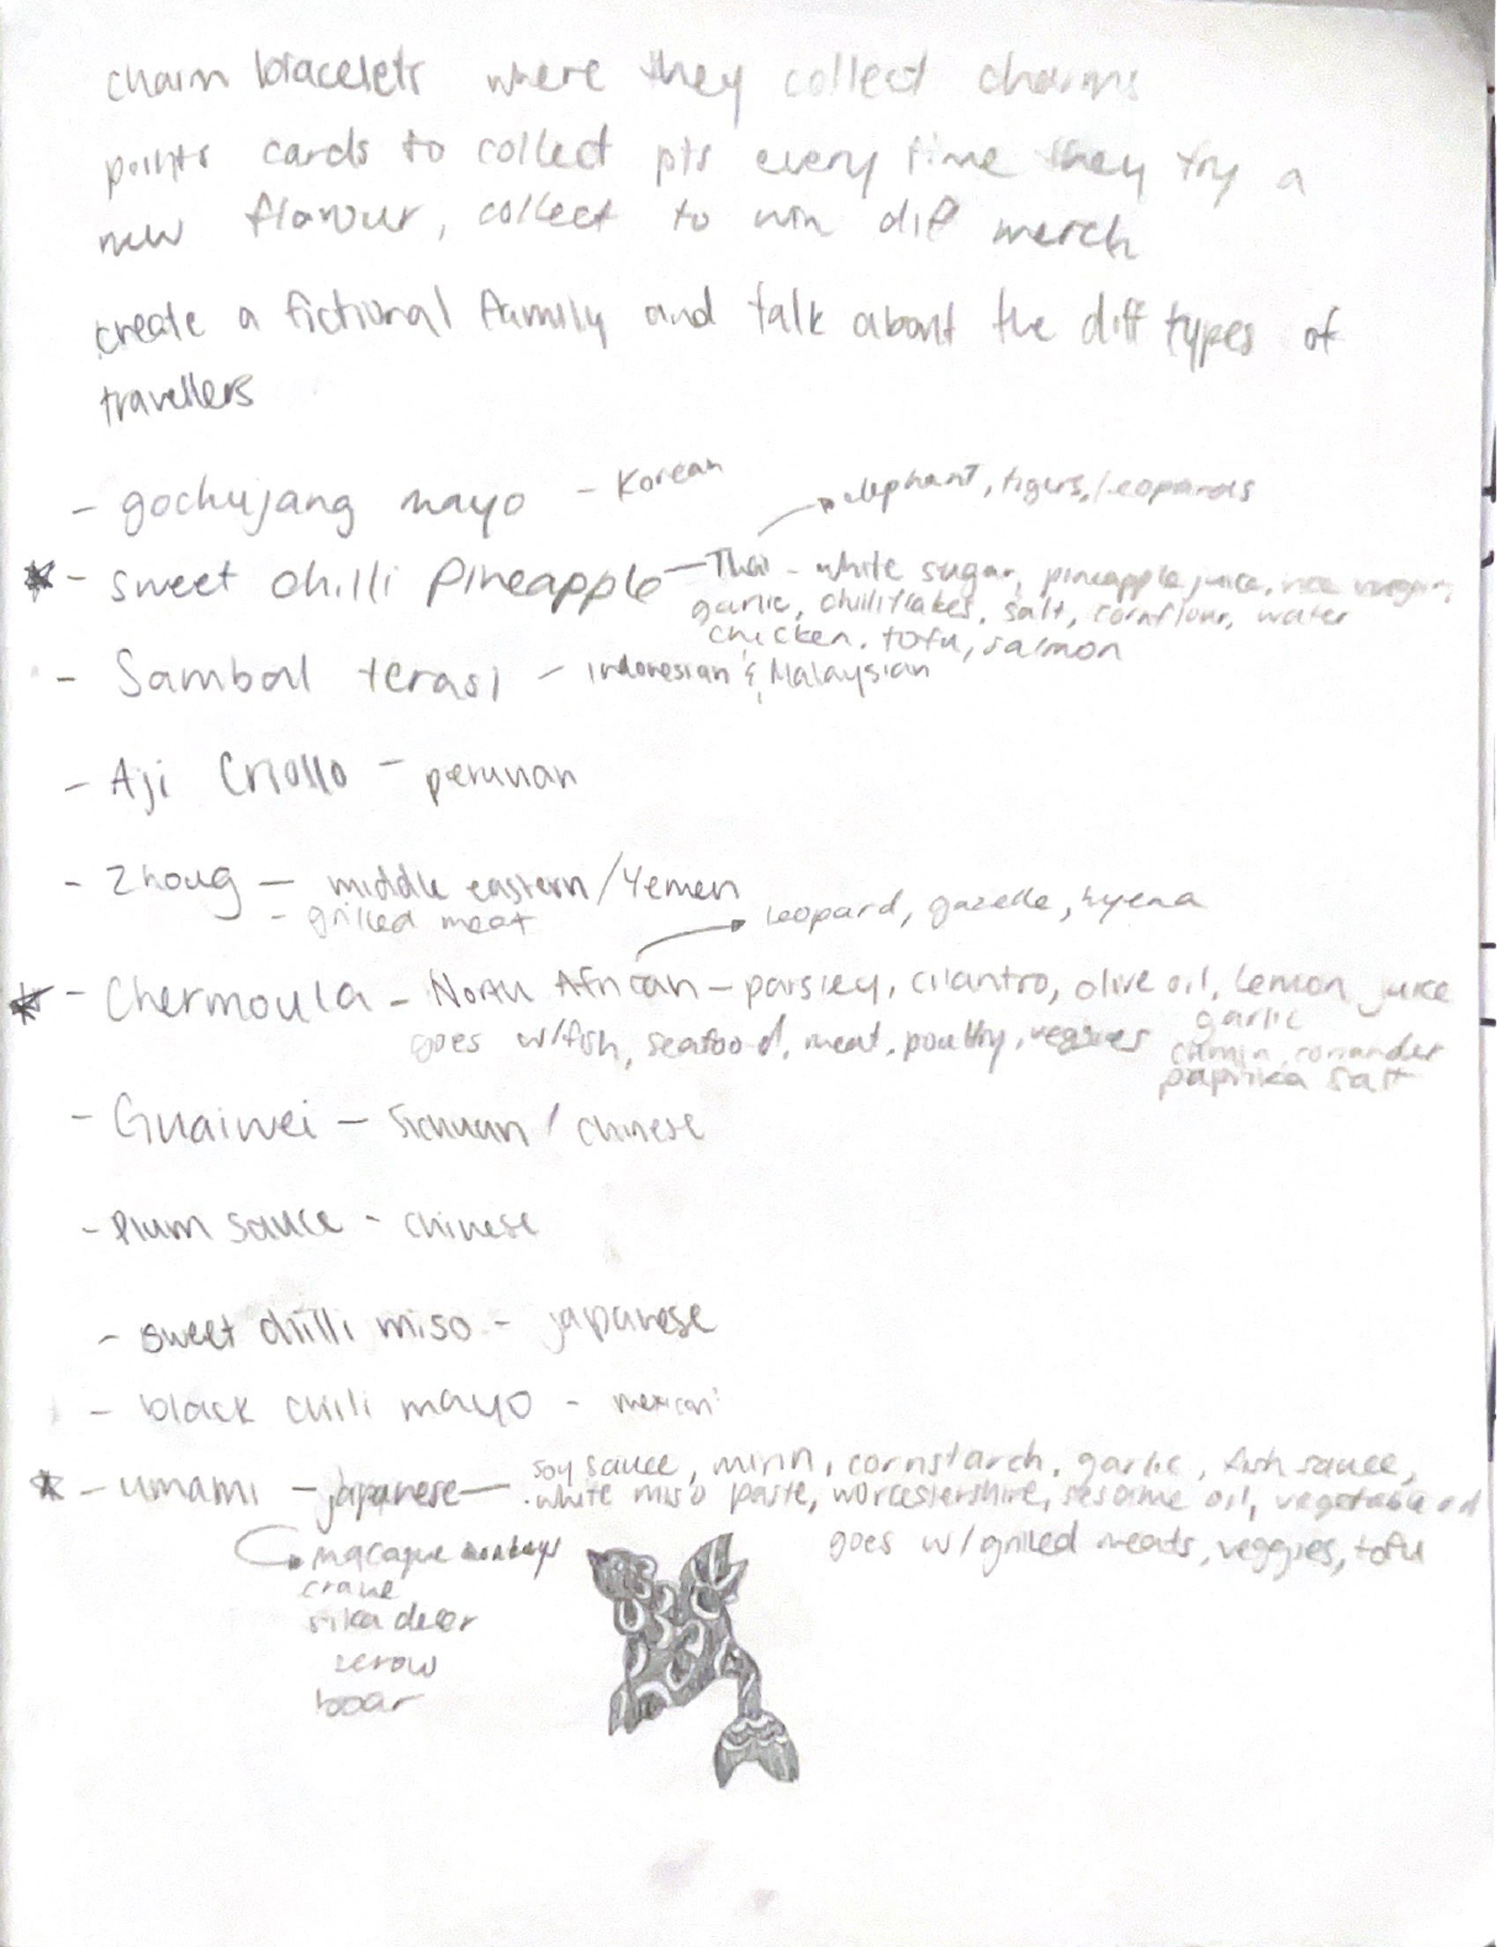 charm bracelets where they collect charms
points cards to collect pts every time they try a
new flavour, collect to win diff merch
create a fictional family and talk about the diff types of
travellers
- gochujang mayo - Korean
elephant, tigers, leopards
- sweet chilli Pineapple - Thai - white sugar, pineapple juice, rice vinegar,
garlic, chilli flakes, salt, cornflour, water
chicken, tofu, salmon
- Sambal terasi - Indonesian & Malaysian
- Aji Criollo - peruvian
- Zhoug - middle eastern/Yemen
- grilled meat
leopard, gazelle, hyena
- Chermoula - North African - parsley, cilantro, olive oil, lemon juice
garlic
goes w/fish, seafood, meat, poultry, veggies
cumin, coriander
paprika salt
- Guaiwei - Sichuan / chinese
- Plum sauce - chinese
- sweet chilli miso - japanese
- black chili mayo - mexican
- umami - japanese - soy sauce, mirin, cornstarch, garlic, fish sauce,
white miso paste, worcestershire, sesame oil, vegetable oil
goes w/grilled meats, veggies, tofu
macaque monkeys
crane
sika deer
serow
boar